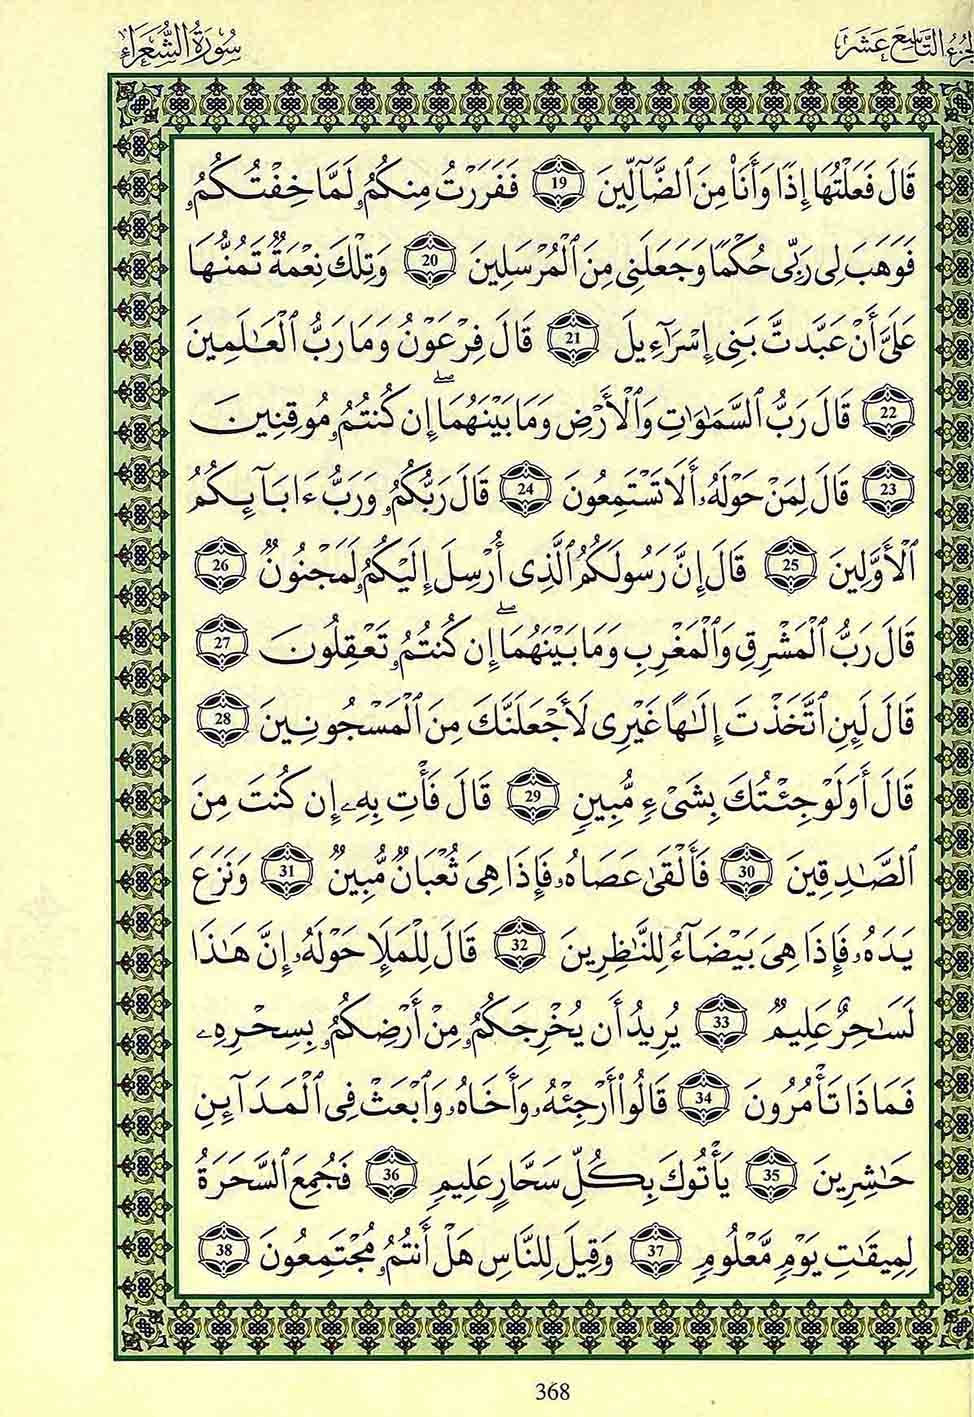 الجزء التاسع عشر
سورة الشعراء
قَالَ فَعَلْتُهَا إِذًا وَأَنَا۠ مِنَ ٱلضَّآلِّينَ 19 فَفَرَرْتُ مِنكُمُۥ لَمَّا خِفْتُكُمُۥ
فَوَهَبَ لِى رَبِّى حُكْمًا وَجَعَلَنِى مِنَ ٱلْمُرْسَلِينَ 20 وَتِلْكَ نِعْمَةٌ تَمُنُّهَا
عَلَىَّ أَنْ عَبَّدتَّ بَنِىٓ إِسْرَآءِيلَ 21 قَالَ فِرْعَوْنُ وَمَا رَبُّ ٱلْعَٰلَمِينَ
22 قَالَ رَبُّ ٱلسَّمَٰوَٰتِ وَٱلْأَرْضِ وَمَا بَيْنَهُمَا ۖ إِن كُنتُمُۥ مُوقِنِينَ
23 قَالَ لِمَنْ حَوْلَهُۥ أَلَا تَسْتَمِعُونَ 24 قَالَ رَبُّكُمُۥ وَرَبُّ ءَابَآئِكُمُ
ٱلْأَوَّلِينَ 25 قَالَ إِنَّ رَسُولَكُمُ ٱلَّذِى أُرْسِلَ إِلَيْكُمُۥ لَمَجْنُونٌ 26
قَالَ رَبُّ ٱلْمَشْرِقِ وَٱلْمَغْرِبِ وَمَا بَيْنَهُمَا ۖ إِن كُنتُمُۥ تَعْقِلُونَ 27
قَالَ لَئِنِ ٱتَّخَذْتَ إِلَٰهًا غَيْرِى لَأَجْعَلَنَّكَ مِنَ ٱلْمَسْجُونِينَ 28
قَالَ أَوَلَوْ جِئْتُكَ بِشَىْءٍ مُّبِينٍ 29 قَالَ فَأْتِ بِهِۦ إِن كُنتَ مِنَ
ٱلصَّٰدِقِينَ 30 فَأَلْقَىٰ عَصَاهُۥ فَإِذَا هِىَ ثُعْبَانٌ مُّبِينٌ 31 وَنَزَعَ
يَدَهُۥ فَإِذَا هِىَ بَيْضَآءُ لِلنَّٰظِرِينَ 32 قَالَ لِلْمَلَإِ حَوْلَهُۥ إِنَّ هَٰذَا
لَسَٰحِرٌ عَلِيمٌ 33 يُرِيدُ أَن يُخْرِجَكُمُۥ مِنْ أَرْضِكُمُۥ بِسِحْرِهِۦ
فَمَاذَا تَأْمُرُونَ 34 قَالُوا۟ أَرْجِئْهُۥ وَأَخَاهُۥ وَٱبْعَثْ فِى ٱلْمَدَآئِنِ
حَٰشِرِينَ 35 يَأْتُوكَ بِكُلِّ سَحَّارٍ عَلِيمٍ 36 فَجُمِعَ ٱلسَّحَرَةُ
لِمِيقَٰتِ يَوْمٍ مَّعْلُومٍ 37 وَقِيلَ لِلنَّاسِ هَلْ أَنتُمُۥ مُجْتَمِعُونَ 38
368